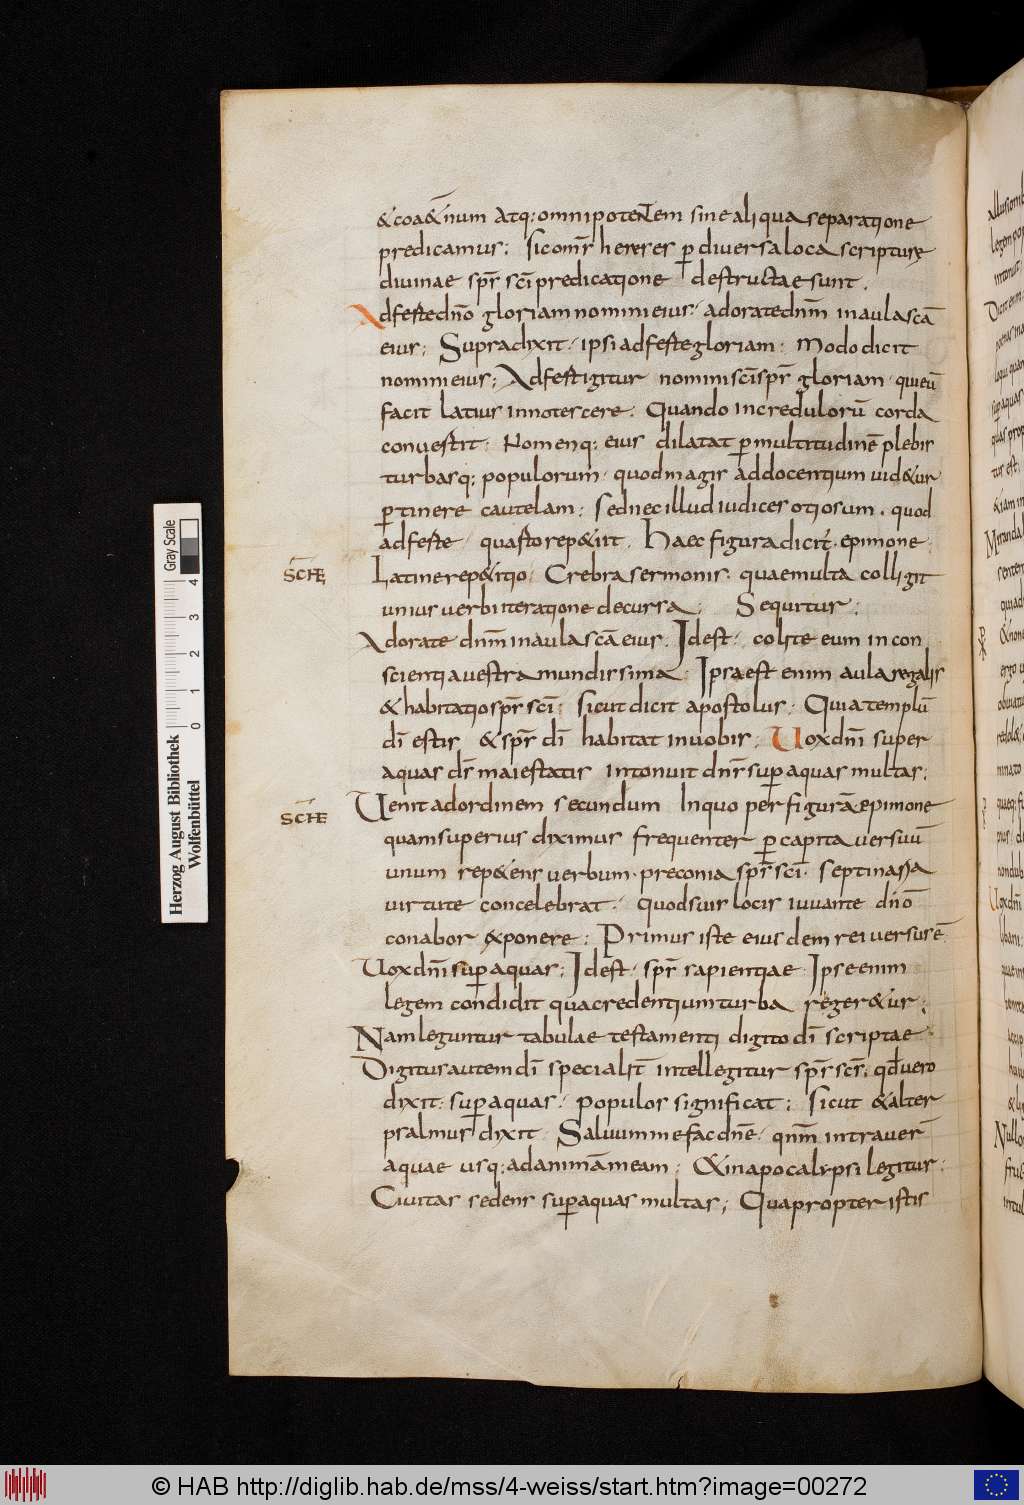 &coa&̄num Atq; omnipotentem sine aliqua separatione
predicamus; sic om̄s hereses ꝑ diversa loca scripturę
divinae sp̄s sc̄i predicatione destructae sunt.
Adferte dn̄o gloriam nomini eius· adorate dn̄m in aula sc̄a
eius; Supra dixit· ipsi adferte gloriam· Modo dicit
nomini eius; Adfertigitur nomini sc̄i sp̄s gloriam· qui eū
facit latius innotescere. Quando incredulorū corda
convertit· Nomenq; eius dilatat ꝑ multitudinē plebis
turbasq; populorum· quod magis ad docentium vid&ur
ꝑtinere cautelam; Sed nec illud iudices otiosum. quod
adferte quarto rep&iit. Haec figura dicit· epimone
SCHE
Latine rep&itio· Crebra sermonis· quae multa colligit
unius verbi iteratione decursa; Sequitur;
Adorate dn̄m in aula sc̄a eius. Idest· colite eum in con
scientia vestra mundissima Ipsa est enim aula regalis
& habitatio sp̄s sc̄i; sicut dicit apostolus; Quia templū
dī estis & sp̄s dī habitat in vobis; Uox dn̄i super
aquas ds̄ maiestatis intonuit dn̄s suꝑ aquas multas;
SCHE
Venit ad ordinem secundum In quo per figurā epimone
quam superius diximus frequenter ꝑ capita versuū
unum rep&ens verbum· preconia sp̄s sc̄i· septinaria
virtute concelebrat· Quod suis locis iuvante dn̄o
conabor exponere; Primus iste eiusdem rei versus ē
Uox dn̄i suꝑ aquas; Idest· sp̄s sapientiae Ipse enim
legem condidit qua credentium turba reger&ur;
Nam leguntur tabulae testamenti digito dī scriptae
Digitus autem dī specialit̄ intellegitur sp̄s sc̄s; qd̄ vero
dixit· suꝑ aquas· populos significat; Sicut & alter
psalmus dixit· Salvum me fac dn̄e· qn̄m intraver̄
aquae usq; ad animā meam; & in apocalypsi legitur;
Civitas sedens suꝑ aquas multas; Quapropter istis
Gray Scale
4
3
2
1
0
Herzog August Bibliothek
Wolfenbüttel
© HAB http://diglib.hab.de/mss/4-weiss/start.htm?image=00272